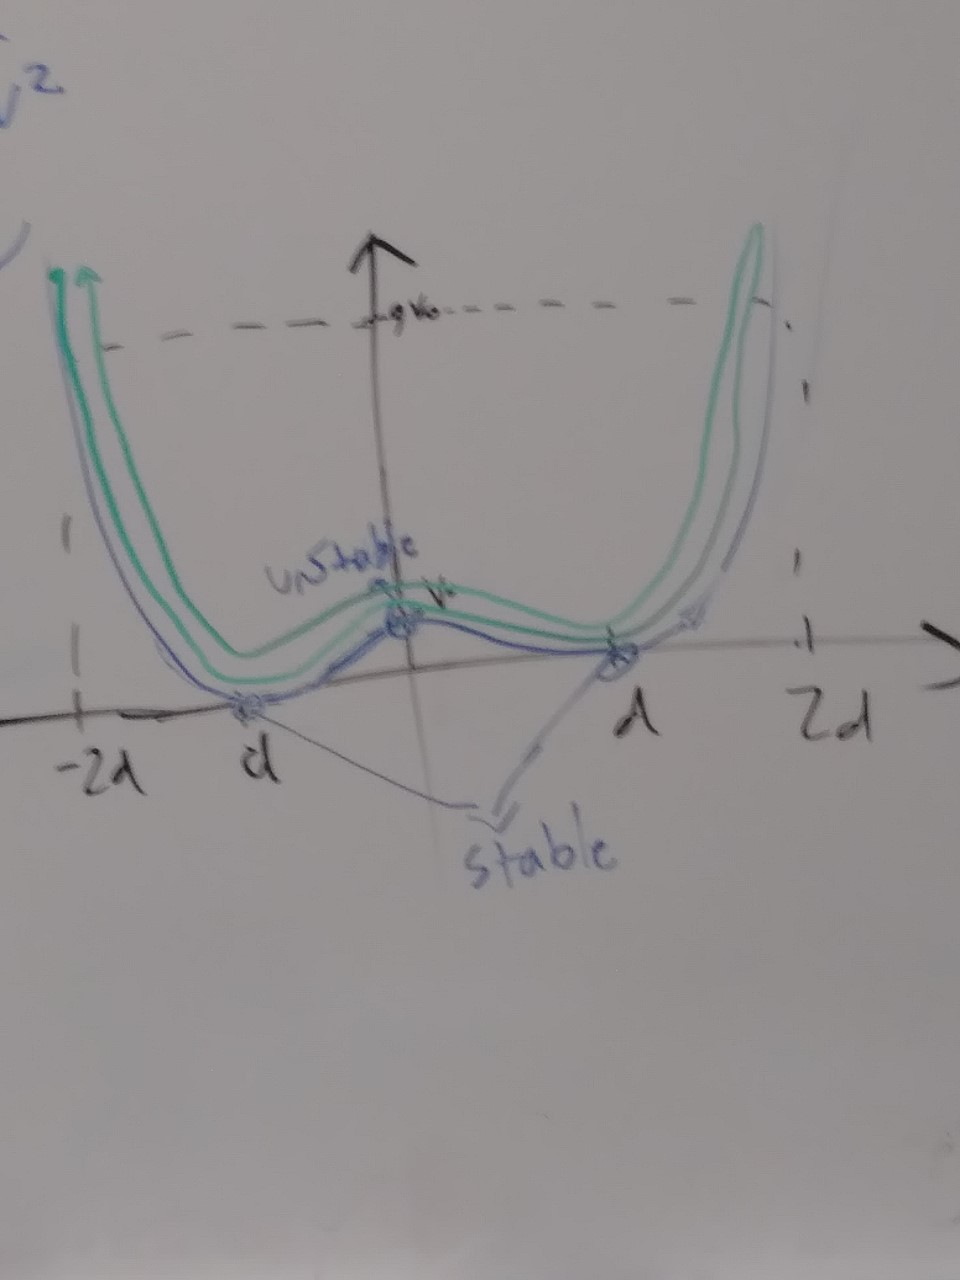 v²
9V₀
unstable
V₀
-2d d d 2d
stable